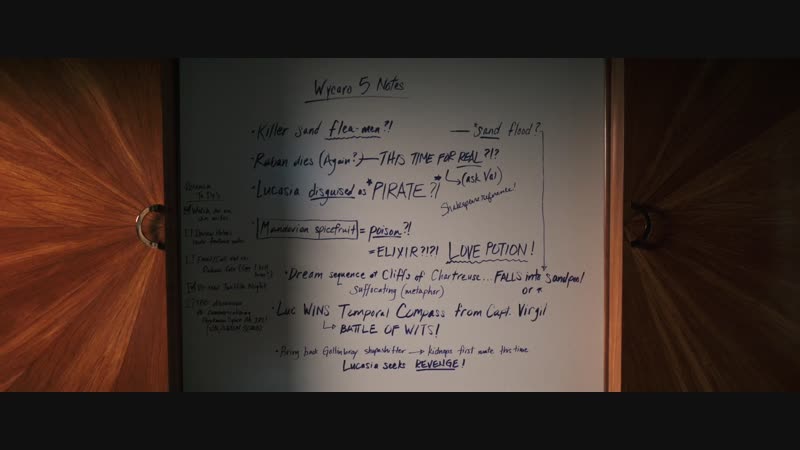 Wycaro 5 Notes
• Killer sand flea-men?! — *sand flood?
• Raban dies (Again?) — THIS TIME FOR REAL?!?
(ask Val)
• Lucasia disguised as *PIRATE?!*
Shakespeare reference!
• Mandorian spicefruit = poison?!
= ELIXIR?!?! LOVE POTION!
• Dream sequence at Cliffs of Chartreuse... FALLS into sand pool
suffocating (metaphor) or *
• Luc WINS Temporal Compass from Capt. Virgil
↳ BATTLE OF WITS!
• Bring back shapeshifter → kidnaps first mate this time
Lucasia seeks REVENGE!
To Do's
Twelfth Night